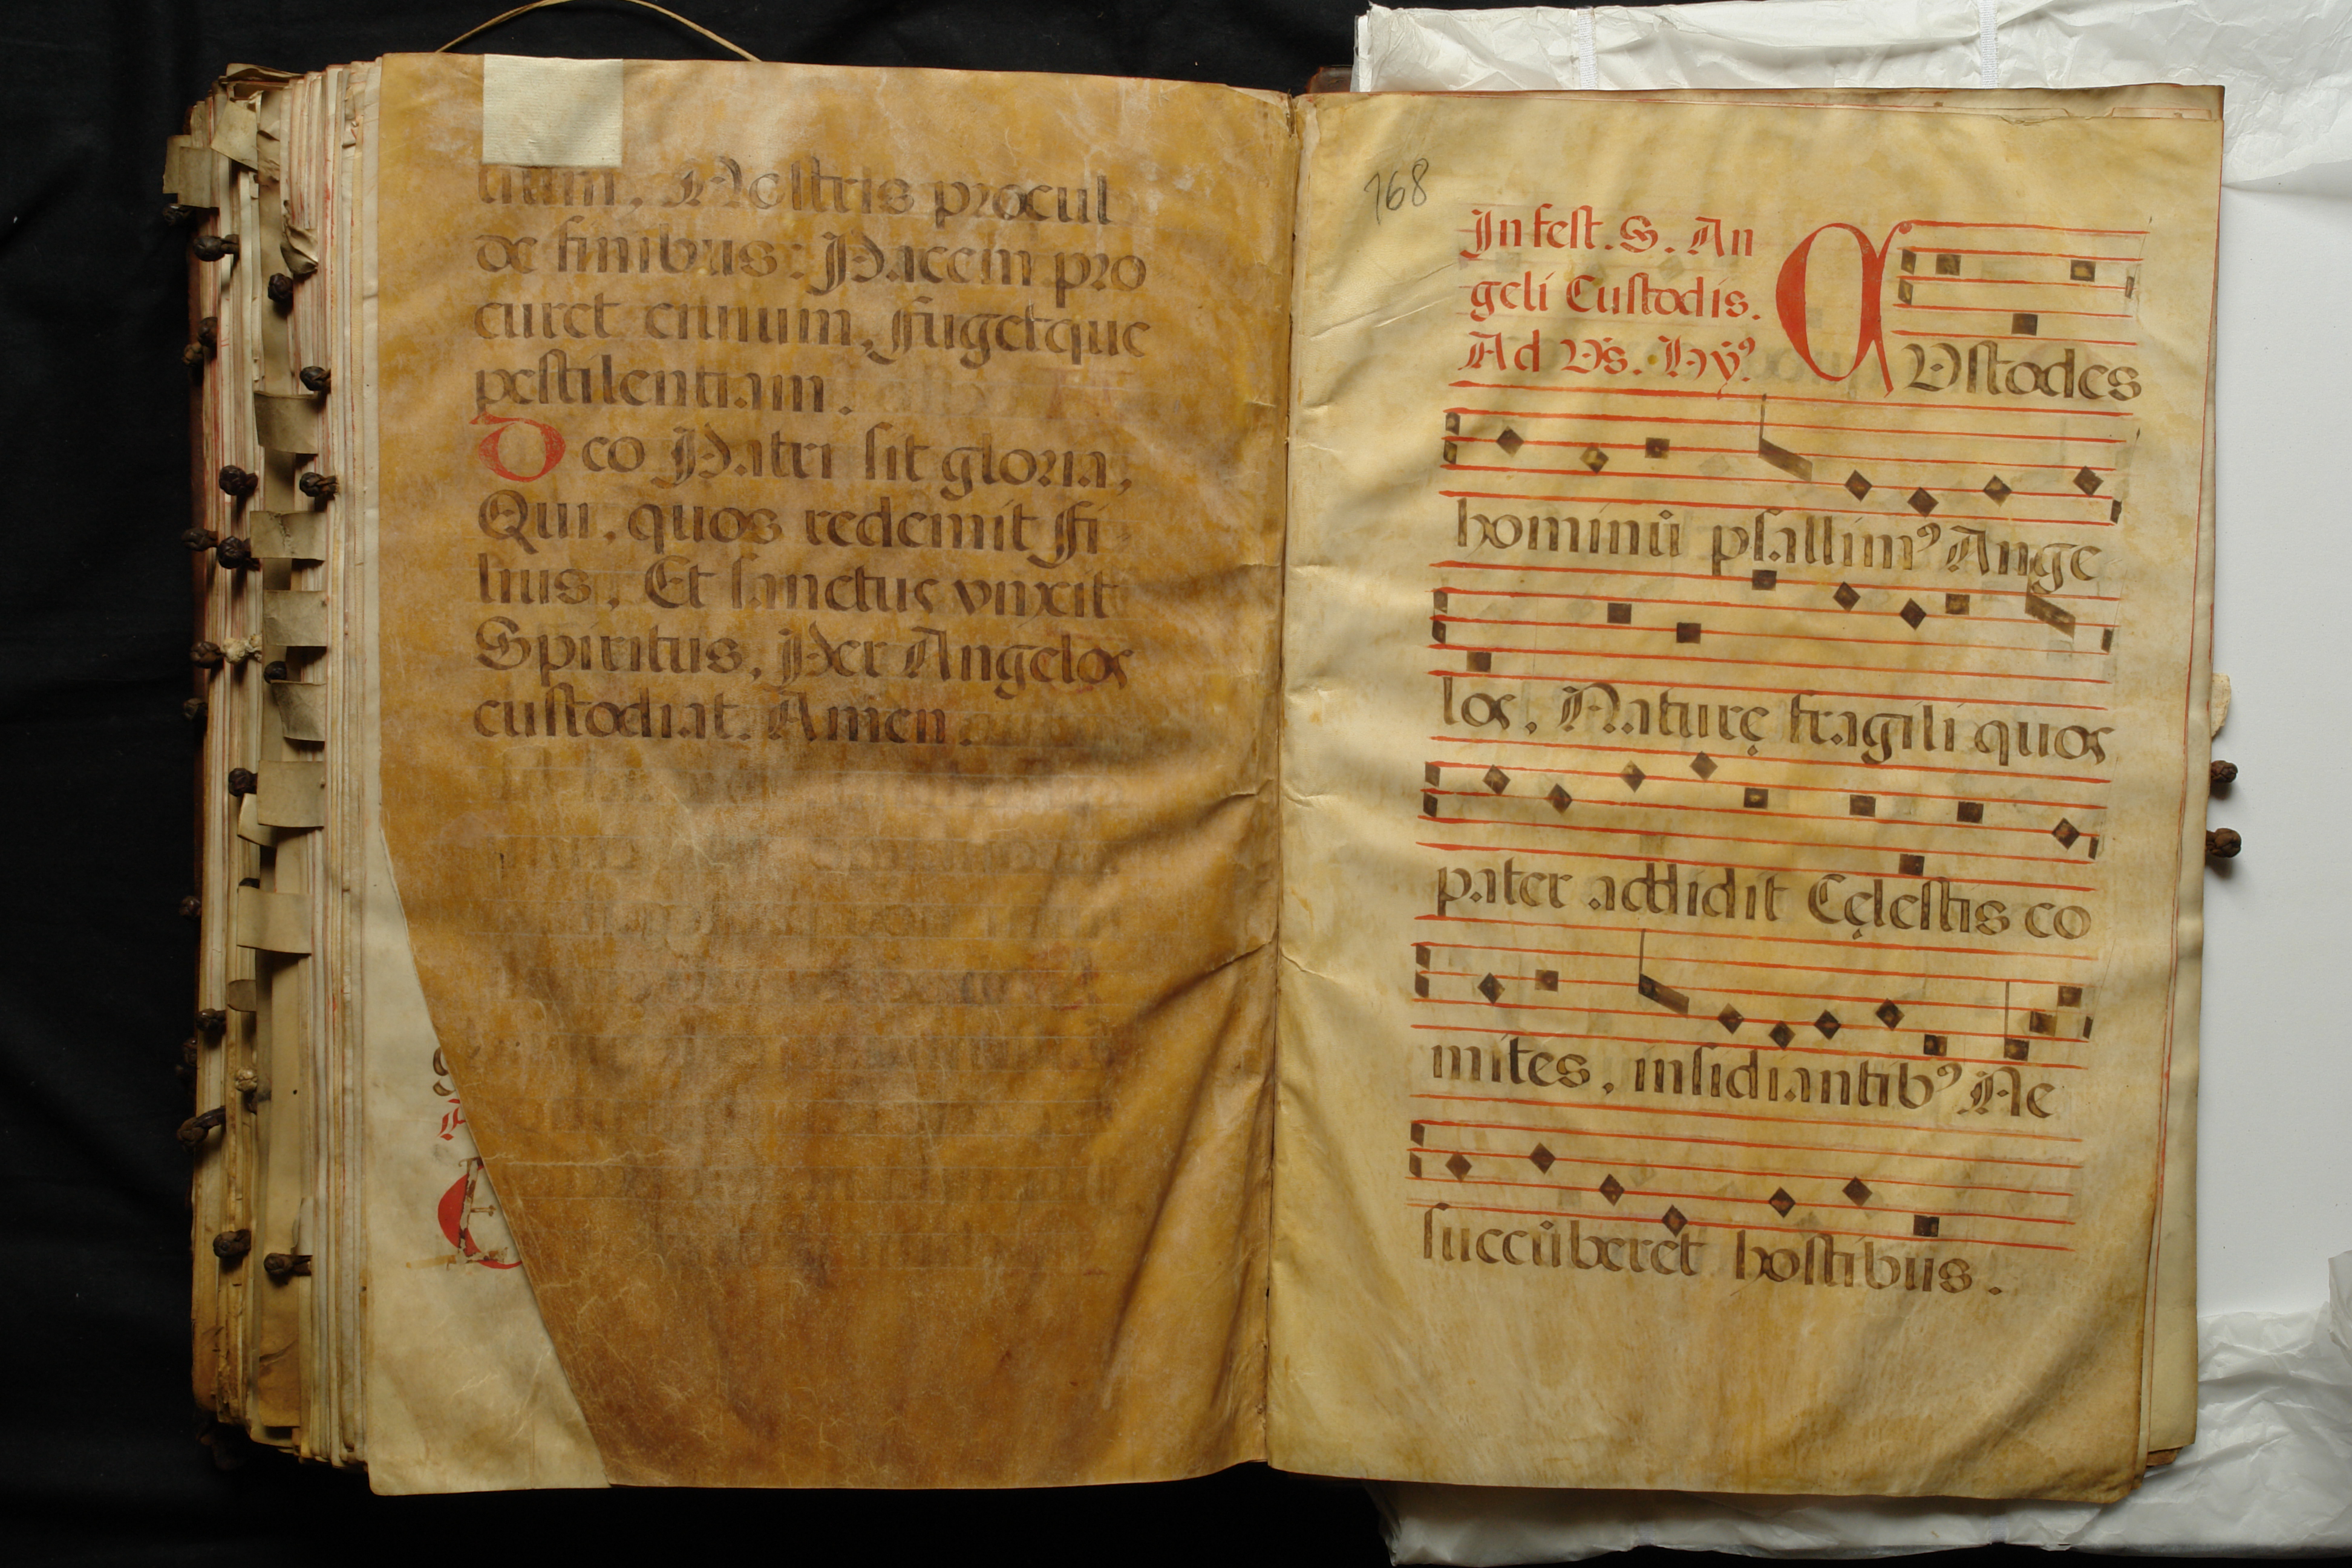 litum, Nostris procul
de finibus: Pacem pro
curet ciuium, Fugetque
pestilentiam.
Deo Patri sit gloria,
Qui, quos redemit Fi
lius, Et sanctus vnxit
Spiritus, Per Angelos
custodiat. Amen.
168
In fest. S. An
geli Custodis.
Ad Vs. Hy9.
CVstodes
hominū psallim9 Ange
los, Naturę fragili quos
pater addidit Cęlestis co
mites, insidiantib9 Ne
succūberet hostibus.